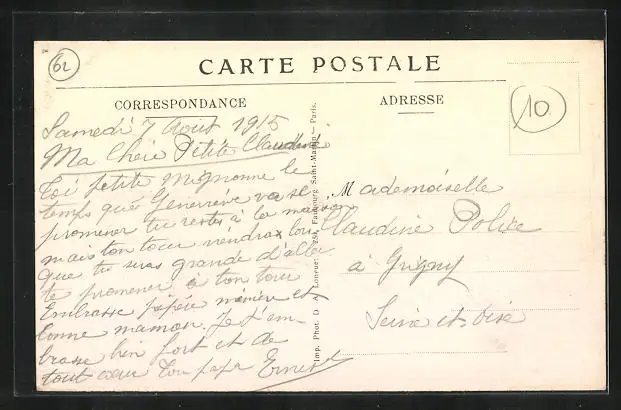 62
CARTE POSTALE
CORRESPONDANCE
ADRESSE
10
Samedi 7 Août 1915
Ma Chère Petite Claudine
toi petite mignonne le
temps que Geneviève va se
promener tu restes à la maison
mais ton tour viendra lors
que tu seras grande d'aller
te promener à ton tour
Embrasse pépère mémère et
bonne maman. Je t'em-
brasse bien fort et de
tout cœur ton papa Ernest
Imp. Phot. D. A. Longuet, 250, Faubourg Saint-Martin — Paris.
Mademoiselle
Claudine
à Grigny
Seine et Oise